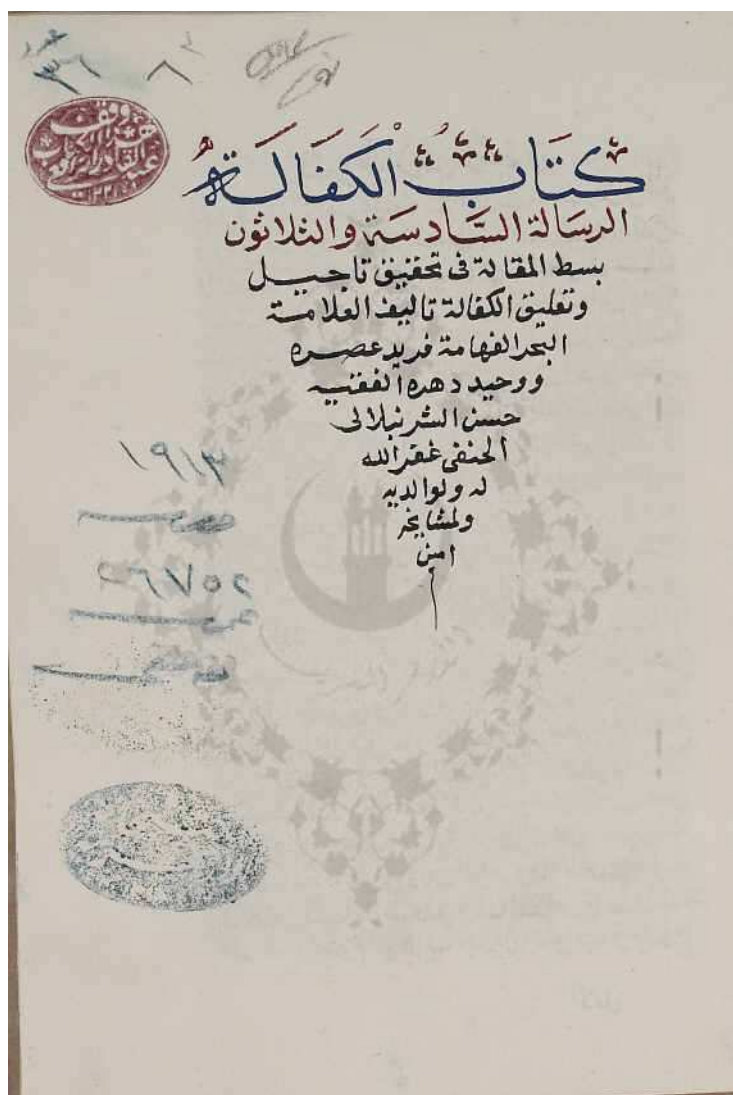 ٣٦ ٨
كتاب الكفالة
الرسالة السادسة والثلاثون
بسط المقالة فى تحقيق تاجيل
وتعليق الكفالة تاليف العلامة
البحر الفهامة فريد عصره
ووحيد دهره الفقيه
حسن الشرنبلالى
الحنفى غفر الله
له ولوالديه
ولمشايخه
امين
١٩١٣
٢٦٧٥٢